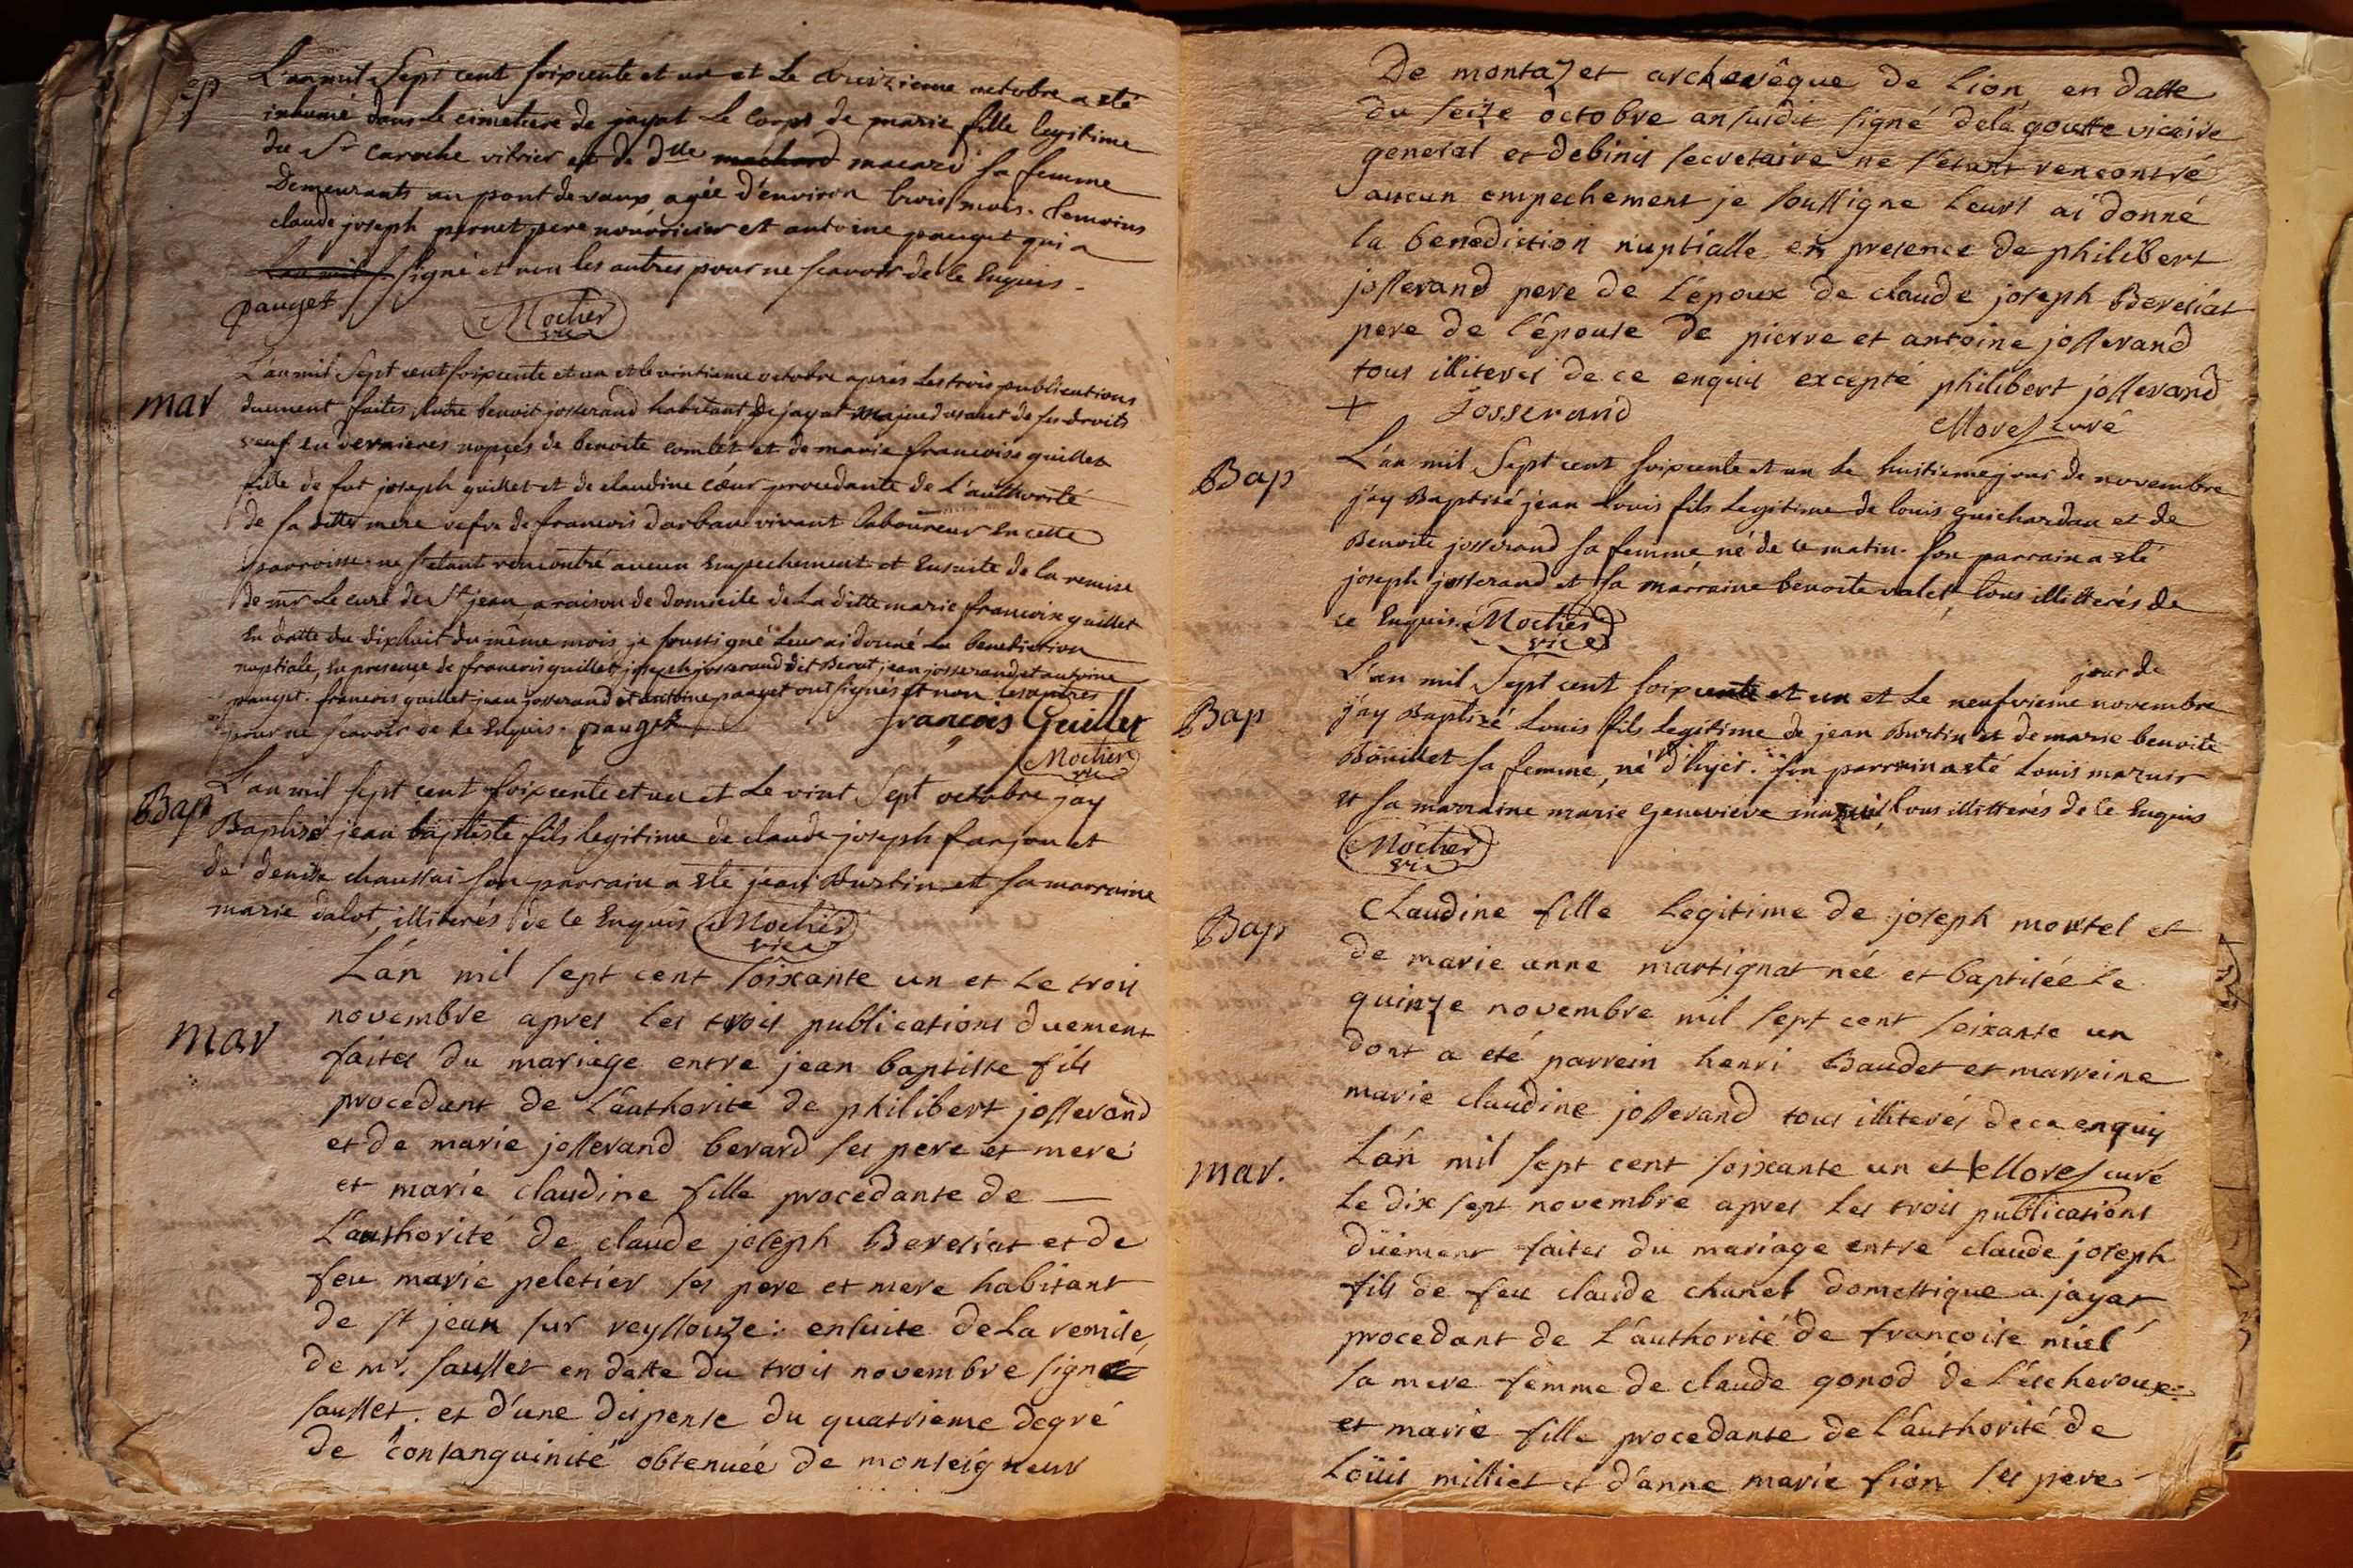 ep
L'an mil Sept cent soixcente et un et Le octobre a eté
inhumé dans Le cimetiere de jayat Le Corps de marie fille legitime
du Sr caroche vitrier et de dlle machard macard sa femme
Demeurants au pont de vaux agée d'environ trois mois. temoins
claude joseph pernet pere nourricier et antoine pauget qui a
L'an mil s signé et non les autres pour ne scavoir de ce Enquis.
pauget Mochier
vic
mar
L'an mil Sept cent soixcente et un et le vintieme octobre aprés Les trois publications
duement faites Entre benoit josserand habitant de jayat majeur usant de ses droits
veuf en dernieres nopces de benoite comlet et de marie francoise guillet
fille de fut joseph guillet et de claudine cœur procedante de L'authorité
de sa ditte mere vefve de francois darban vivant laboureur En cette
parroisse. ne s'etant rencontré aucun Empechement et Ensuite de la remise
de mr Le curé de St jean a raison de domicile de La ditte marie francoise guillet
En datte du dixhuit du même mois je soussigné Leur ai donné La benediction
nuptiale, En presence de francois guillet joseph josserand dit Berat jean josserand et antoine
pauget. francois guillet jean josserand et antoine pauget ont signés et non les autres
pour ne scavoir de ce Enquis. pauget françois Guillet
Mochier
vic
Bap
L'an mil sept cent soixcente et un et Le vint Sept octobre j'ay
Baptisé jean baptiste fils legitime de claude joseph farjon et
de denise chaussai son parrain a eté jean Burtin et sa marraine
marie dalot, illiterés de ce Enquis Mochier
vic
mar
L'an mil sept cent soixante un et Le trois
novembre apres les trois publications duement
faites du mariage entre jean baptiste fils
procedant de L'authorité de philibert josserand
et de marie josserand berard ses pere et mere
et marie claudine fille procedante de
L'authorité de claude joseph Bereziat et de
feu marie peletier ses pere et mere habitant
de st jean sur reyssouze: ensuite de La remise
de mr. sausset en datte du trois novembre signé
sausset. et d'une dispense du quatrieme degré
de consanguinité obtenuée de monseigneur
De montazet archevêque de Lion en datte
du seize octobre an susdit signé dela goutte vicaire
general et debinis secretaire ne s'etant rencontré
aucun empechement je soussigne Leurs ai donné
la benediction nuptialle en presence de philibert
josserand pere de L'époux de claude joseph Bereziat
pere de l'épouse de pierre et antoine josserand
tous illiterés de ce enquis excepté philibert josserand
+ Josserand Morel curé
Bap
L'an mil Sept cent soixcente et un Le huitieme jour de novembre
j'ay Baptisé jean Louis fils Legitime de louis guichardan et de
Benoite josserand sa femme né de ce matin. son parrain a eté
joseph josserand et sa marraine benoite valet tous illitterés de
ce Enquis. Mochier
vic
Bap
jour de
L'an mil Sept cent soixcente et un et Le neufvieme novembre
j'ay Baptisé Louis fils Legitime de jean Burtin et de marie benoite
Bouillet sa femme, né d'hyer. son parrain a eté Louis mazuir
et sa marraine marie genevieve mazuir, tous illitterés de ce Enquis
Mochier
vic
Bap
Claudine fille Legitime de joseph mortel et
de marie anne martignat née et baptisée Le
quinze novembre mil sept cent soixante un
dont a eté parrein henri Baudet et marreine
marie claudine josserand tous illiterés de ce enquis
Morel curé
mar.
L'an mil sept cent soixante un et
Le dix sept novembre apres Les trois publications
duëment faites du mariage entre claude joseph
fils de feu claude chanel domestique a jayat
procedant de L'authorité de françoise niel
sa mere femme de claude gonod de L'écheroux:
et marie fille procedante de L'authorité de
Loüis milliet et d'anne marie fion ses pere